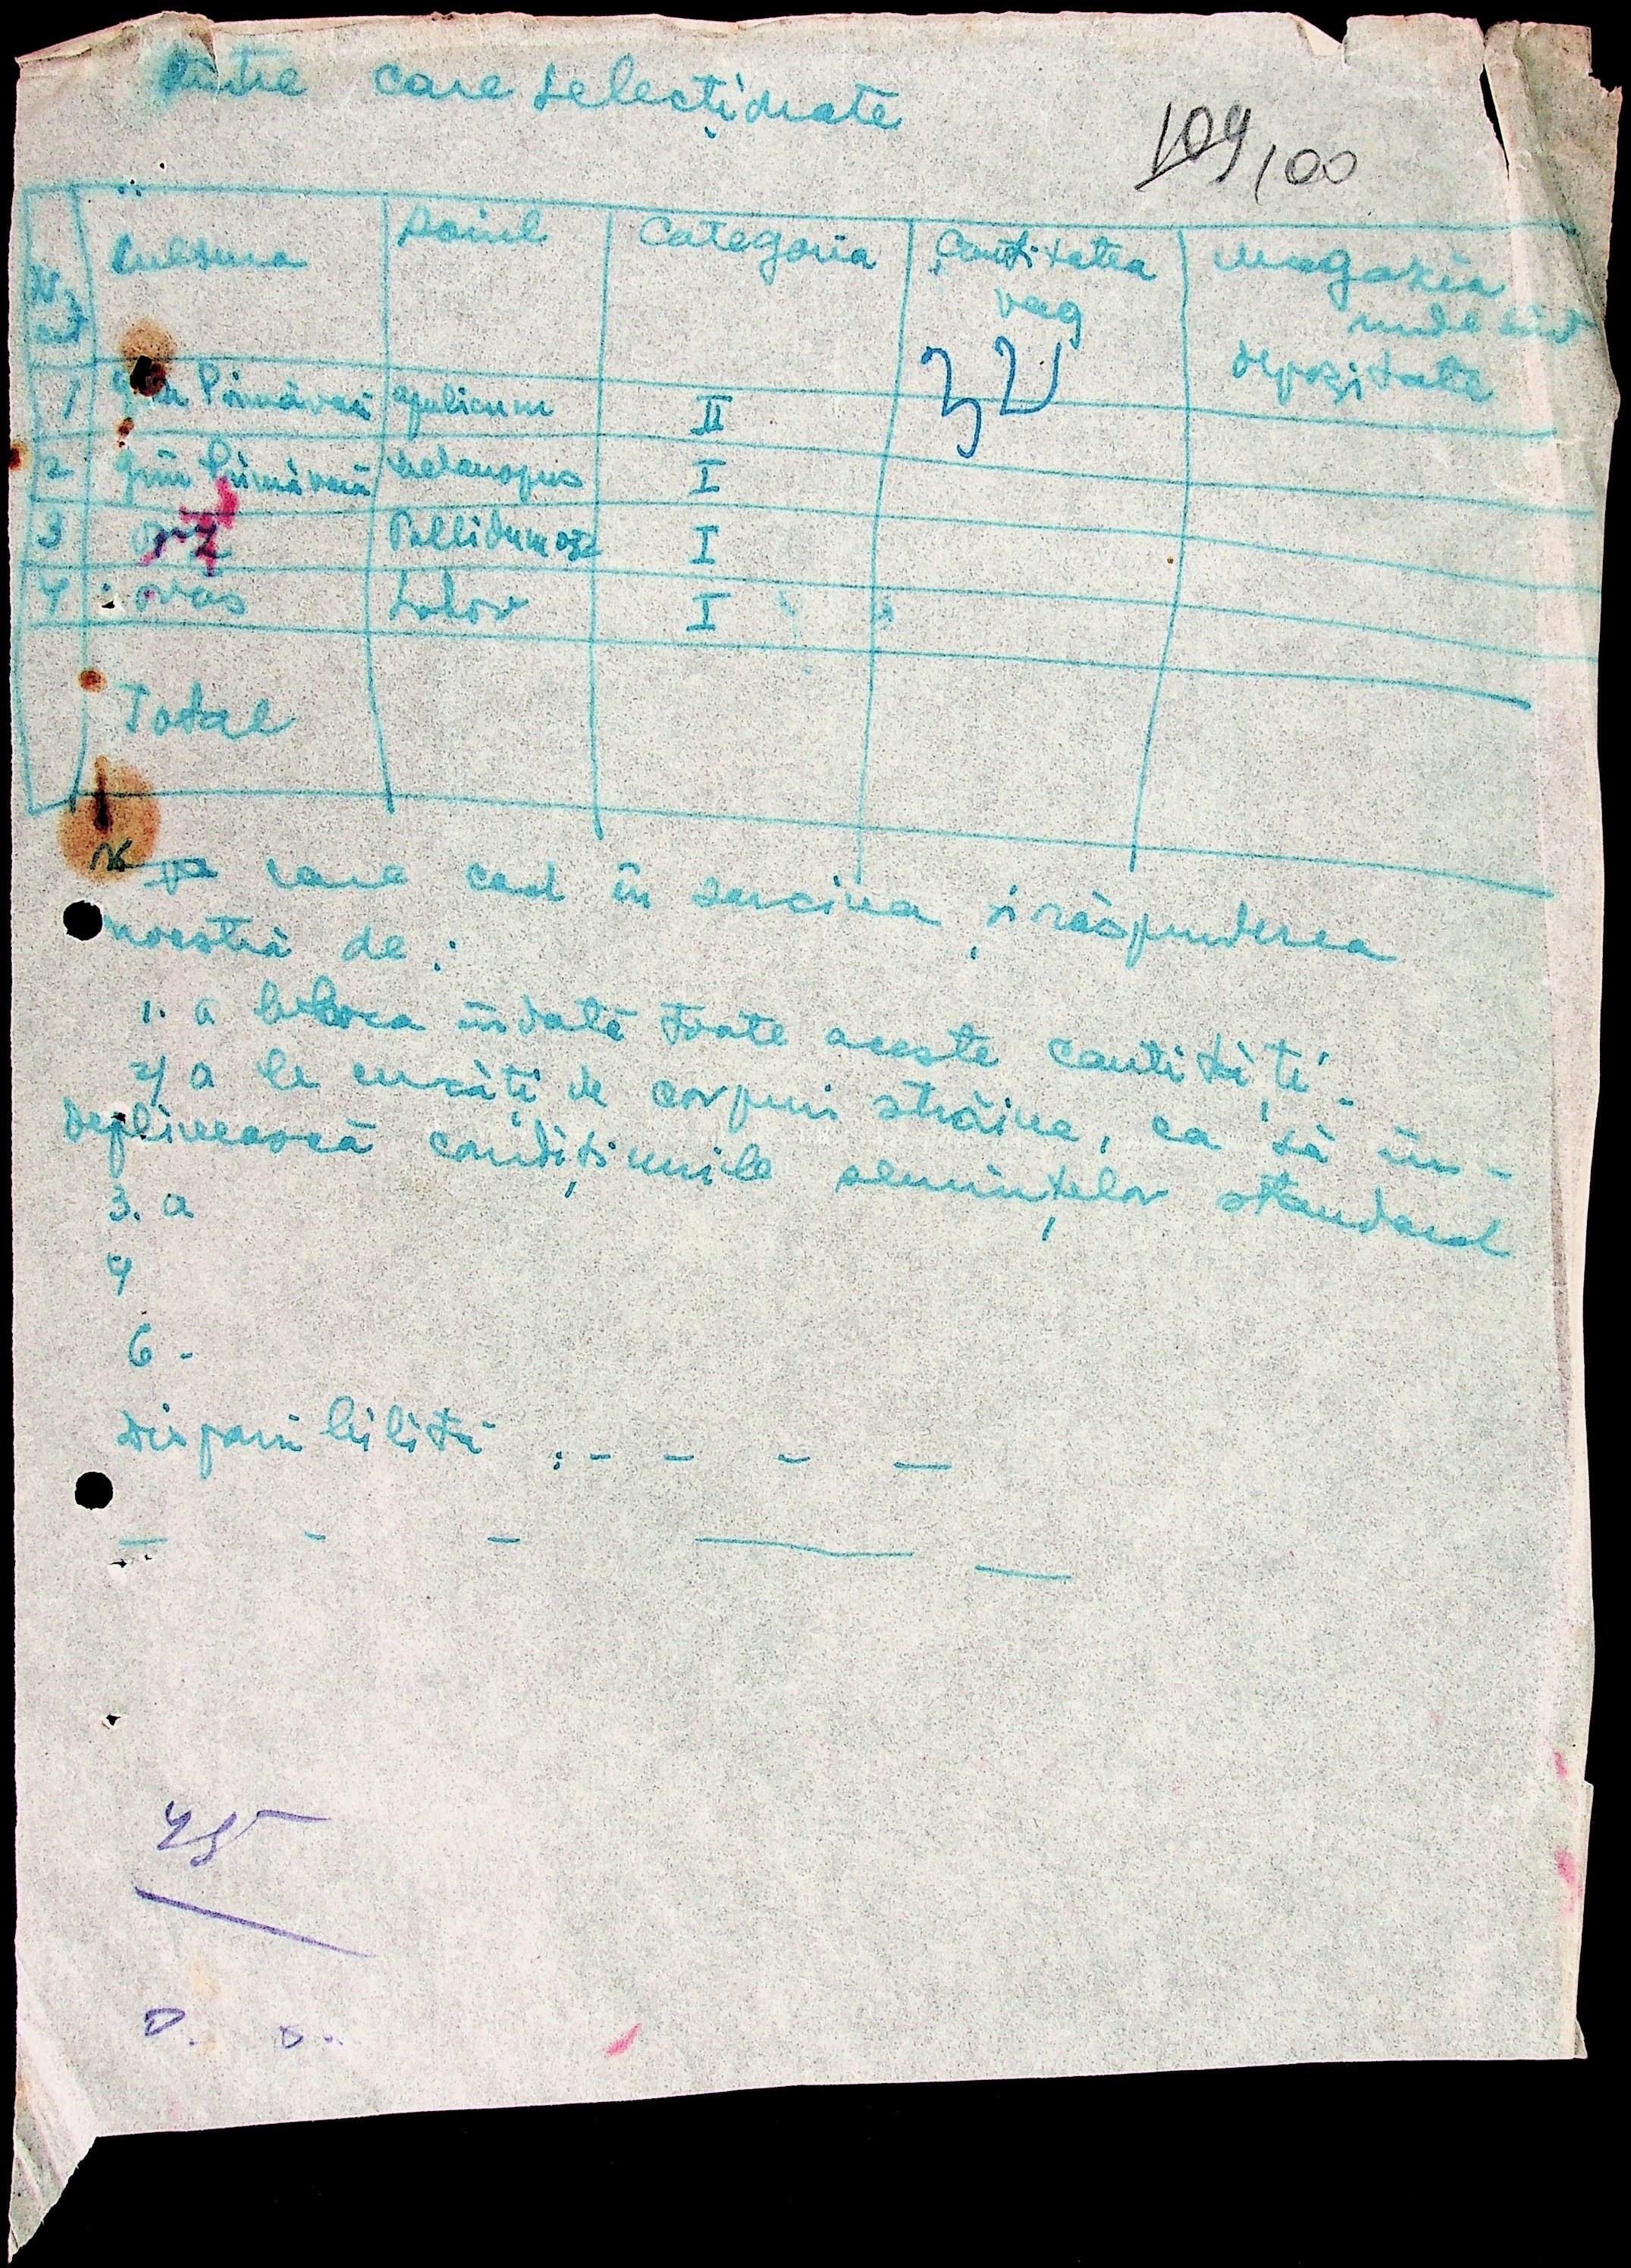 dintre care selecționate
109 100
Nr crt Cultura Soiul Categoria Cantitatea vag Magazia unde sînt depozitate
1 grîu Primăvară apulicum II
2 grîu Primăvară melanopus I
3 orz Pallidum 032 I
4 ovăs Lohov I
Total
care cad în sarcina și răspunderea
noastră de :
1. a bloca îndată toate aceste cantităti -
2/ a le curăți de corpuri străine, ca să îm-
deplinească condițiunile semințelor standard
3. a
4
6 -
Disponibilităti : - - - -
45